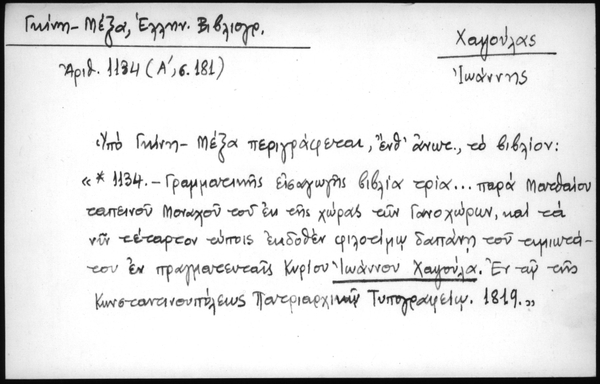 Γκίνη - Μέξα, Ἑλλην. Βιβλιογρ.
Ἀριθ. 1134 (Α΄, σ. 181)
Χαμούλας
Ἰωάννης
Ὑπό Γκίνη - Μέξα περιγράφεται, ἔνθ' ἄνωτ., τό βιβλίον:
«* 1134. - Γραμματικῆς εἰσαγωγῆς βιβλία τρία... παρά Ματθαίου
ταπεινοῦ Μοναχοῦ τοῦ ἐκ τῆς χώρας τῶν Γανοχώρων, καί τά
νῦν τέταρτον τύποις ἐκδοθέν φιλοτίμῳ δαπάνῃ τοῦ τιμιωτά-
του ἐν πραγματευταῖς Κυρίου Ἰωάννου Χαμούλα. Ἐν τῷ τῆς
Κωνσταντινουπόλεως Πατριαρχικῷ Τυπογραφείῳ. 1819.»